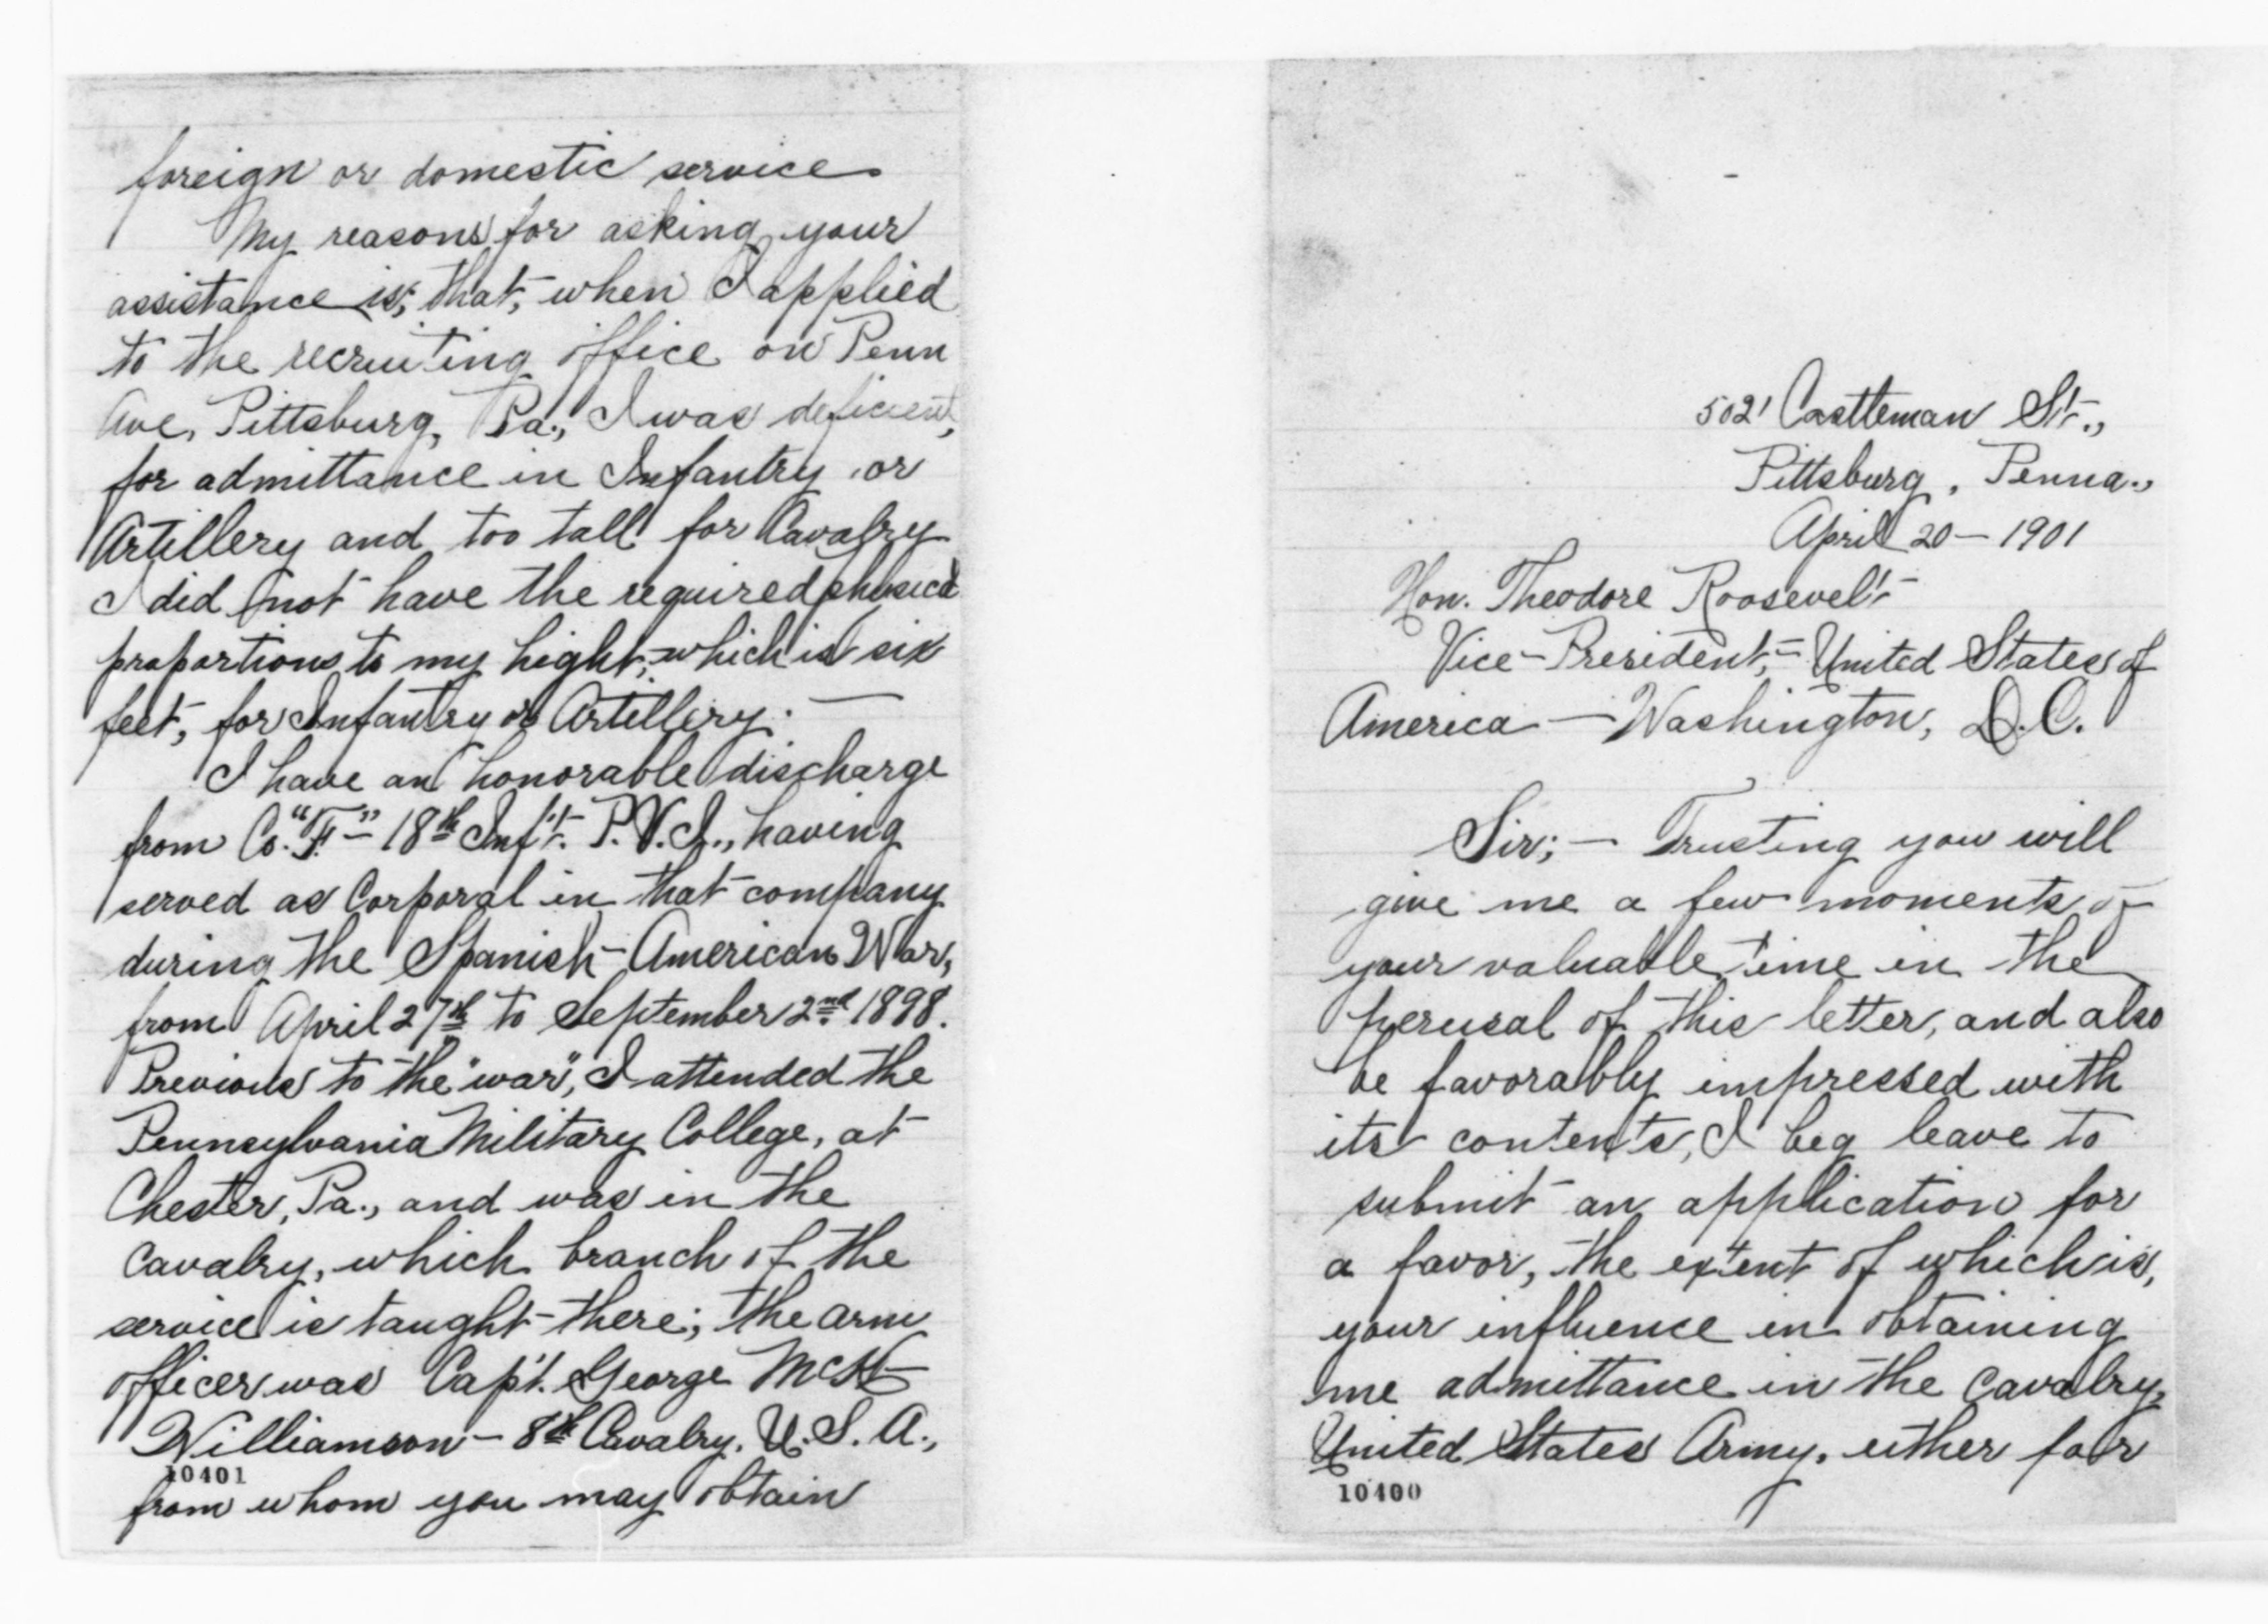 5021 Castleman St.,
Pittsburg, Penna.,
April 20 — 1901
Hon. Theodore Roosevelt
Vice-President, — United States of
America — Washington, D.C.
Sir; — Trusting you will
give me a few moments of
your valuable time in the
perusal of this letter, and also
be favorably impressed with
its contents, I beg leave to
submit an application for
a favor, the extent of which is,
your influence in obtaining
me admittance in the cavalry,
United States Army, either for
10400
foreign or domestic service.
My reasons for asking your
assistance is, that, when I applied
to the recruiting office on Penn
Ave, Pittsburg, Pa., I was deficient,
for admittance in Infantry or
Artillery and too tall for Cavalry
I did not have the required physical
proportions to my hight, which is six
feet, for Infantry or Artillery. —
I have an honorable discharge
from Co. "F" — 18th Inf't. P.V.I., having
served as Corporal in that company
during the Spanish-American War,
from April 27th to September 2nd 1898.
Previous to the "war", I attended the
Pennsylvania Military College, at
Chester, Pa., and was in the
cavalry, which branch of the
service is taught there; the arm
officer was Cap't. George McK
Williamson — 8th Cavalry. U.S.A.,
10401
from whom you may obtain